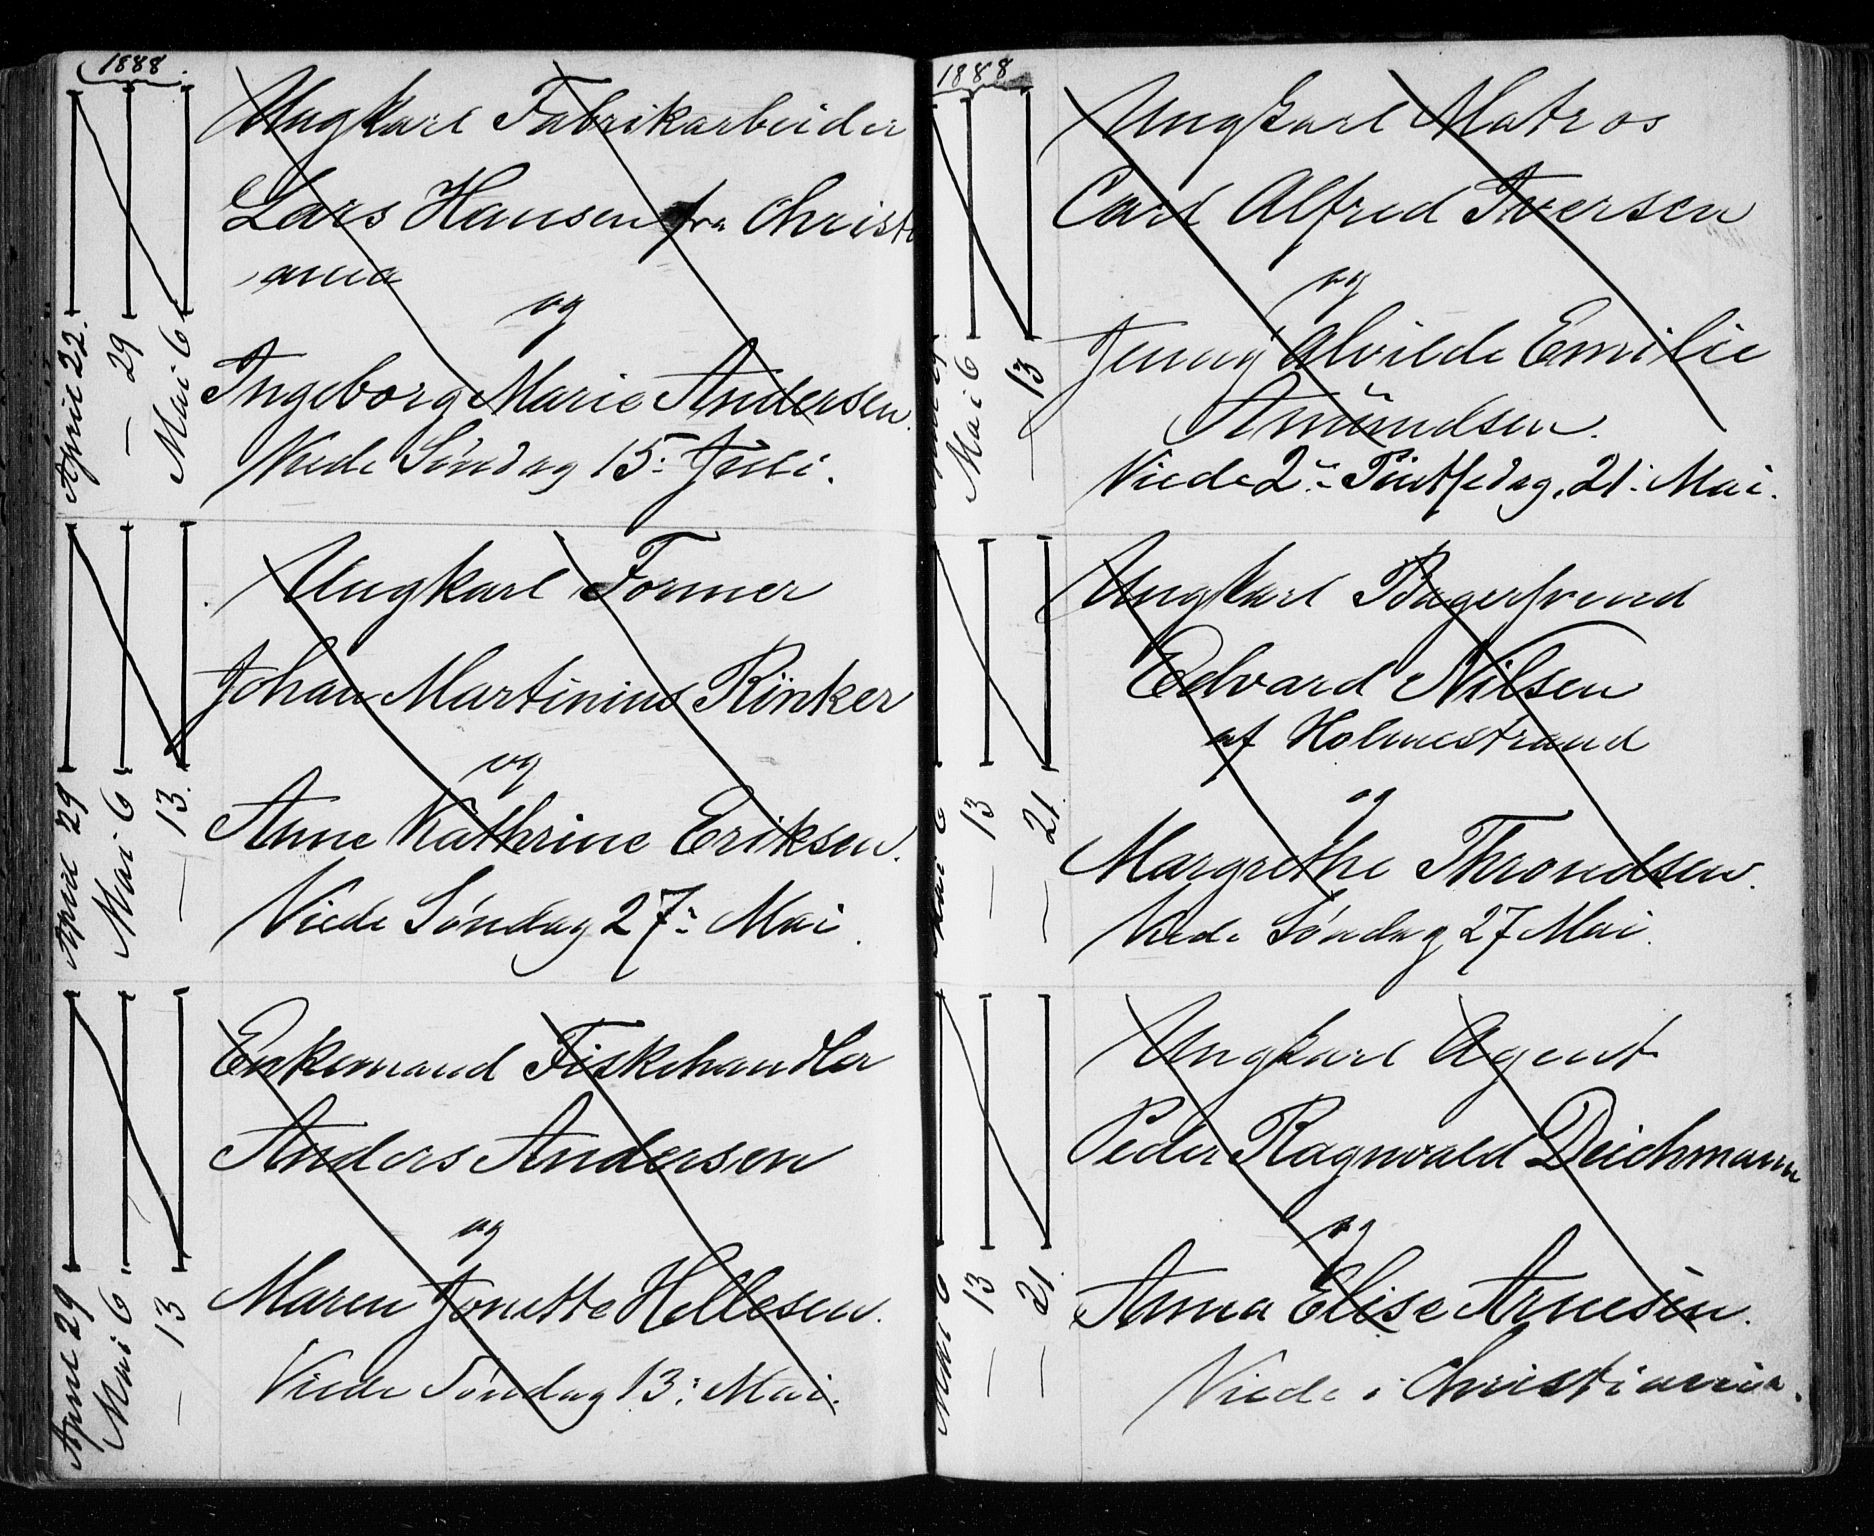 1888.
April 22.
— 29
Mai 6
Ungkarl Fabrikarbeider
Lars Hansen fra Christi
ania
og
Ingeborg Marie Andersen.
Viede Søndag 15: Juli.
April 29
Mai 6
— 13.
Ungkarl Former
Johan Martinius Rinker
og
Anne Kathrine Eriksen.
Viede Søndag 27: Mai.
April 29
Mai 6
— 13
Enkemand Fiskehandler
Anders Andersen
og
Maren Jonette Hellesen.
Viede Søndag 13: Mai.
1888
Mai 6
— 13
Ungkarl Matros
Carl Alfred Iversen
og
Jenny Alvilde Emilie
Amundsen.
Viede 2: Pintsedag, 21: Mai.
Mai 6
— 13
— 21.
Ungkarl Bagersvend
Edvard Nilsen
af Holmestrand
og
Margrethe Throndsen.
Viede Søndag 27 Mai.
Mai 6
— 13
— 21.
Ungkarl Agent
Peder Ragnvald Deichmann
og
Anna Elise Arnesen.
Viede i Christiania.